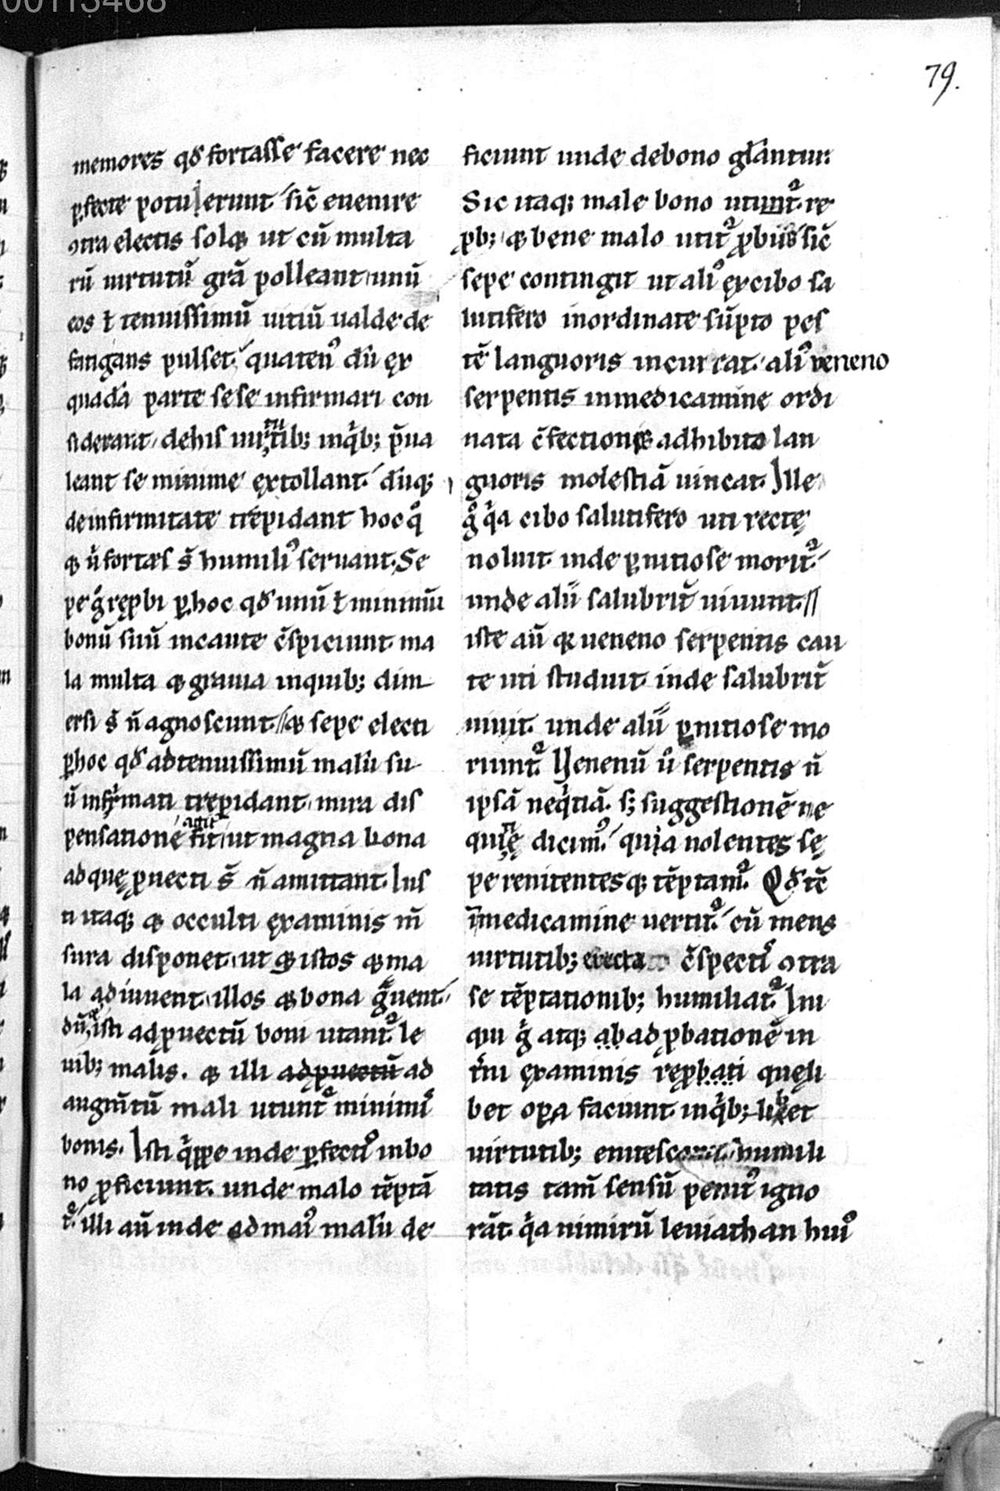 00113468
79.
memores qđ fortasse facere nec
ꝑfecte potuerunt sic̄ euenire
ꝯtra electis solꝫ ut cū multa
rū uirtutū grā polleant unū
eos ł tenuissimū uitiū ualde de
fatigans pulset, quatenꝰ dū ęx
quadā parte sese infirmari con
siderant, de his uirtutibꝫ in qͥbꝫ p̄ua
leant se minime ęxtollant. dūqꝫ
de infirmitate trepidant hoc qͦ
qꝫ n̄ fortes s̄ humiliꝰ seruant. Se
pe gͦ ręꝓbi ꝑ hoc qđ unū ł minimū
bonū suū incaute c̄spiciunt ma
la multa qꝫ grauia in quibꝫ dim
ersi s̄ n̄ agnoscunt, qꝫ sepe electi
ꝑ hoc qđ ad tenuissimū malū su
ū infirmati trepidant, mira dis
pensatione agit fit ut magna bona
ad quę ꝓuecti s̄ n̄ amittant. Ius
ti itaqꝫ qꝫ occulti ęxaminis m̄
sura disponet, ut qꝫ istos qꝫ ma
la adiuuent, illos qꝫ bona gͣuent,
dū qꝫ isti ad ꝓuectū boni utant᷑ le
uibꝫ malis. qꝫ illi ad ꝓuectū ad
augm̄tū mali utunt᷑ minimiꝰ
bonis. Isti qͥppe inde ꝑfectiꝰ in bo
no ꝓficiunt. unde malo tēptā
t᷑. illi aū inde ad maiꝰ malū de
ficiunt unde de bono glāntur.
Sic itaqꝫ male bono utunt᷑ re
ꝓbi, qꝫ bene malo utit᷑ ꝓbus sic̄
sepe contingit ut aliꝰ ęx cibo sa
lutifero inordinate sūpto pes
tē languoris incurrat, aliꝰ veneno
serpentis in medicamine ordi
nata c̄fectione adhibito lan
guoris molestiā uincat. Ille
gͦ qͥa cibo salutifero uti rectę
noluit inde ꝑnitiose morit᷑
unde alii salubrit᷑ uiuunt.
iste aū qͥ ueneno serpentis cau
te uti studuit inde salubrit᷑
uiuit unde alii ꝑnitiose mo
riunt᷑. Venenū ů serpentis n̄
ipsā neqͥtiā. sꝫ suggestionē ne
quitię dicimꝰ, quia nolentes sę
pe renitentesqꝫ tēptam᷑. Qđ tē
in medicamine uertit᷑, cū mens
uirtutibꝫ erecta c̄specti ꝯtra
se tēptationibꝫ humiliat᷑. Ini
qui gͦ atqꝫ ab adꝓbationē in
t̄ni ęxaminis ręꝓbati quęli
bet opa faciunt in qͥbꝫ libet
uirtutibꝫ enitescant, humili
tatis tam̄ sensū penitꝰ igno
rāt. qͥa nimirū leuiathan huiꝰ